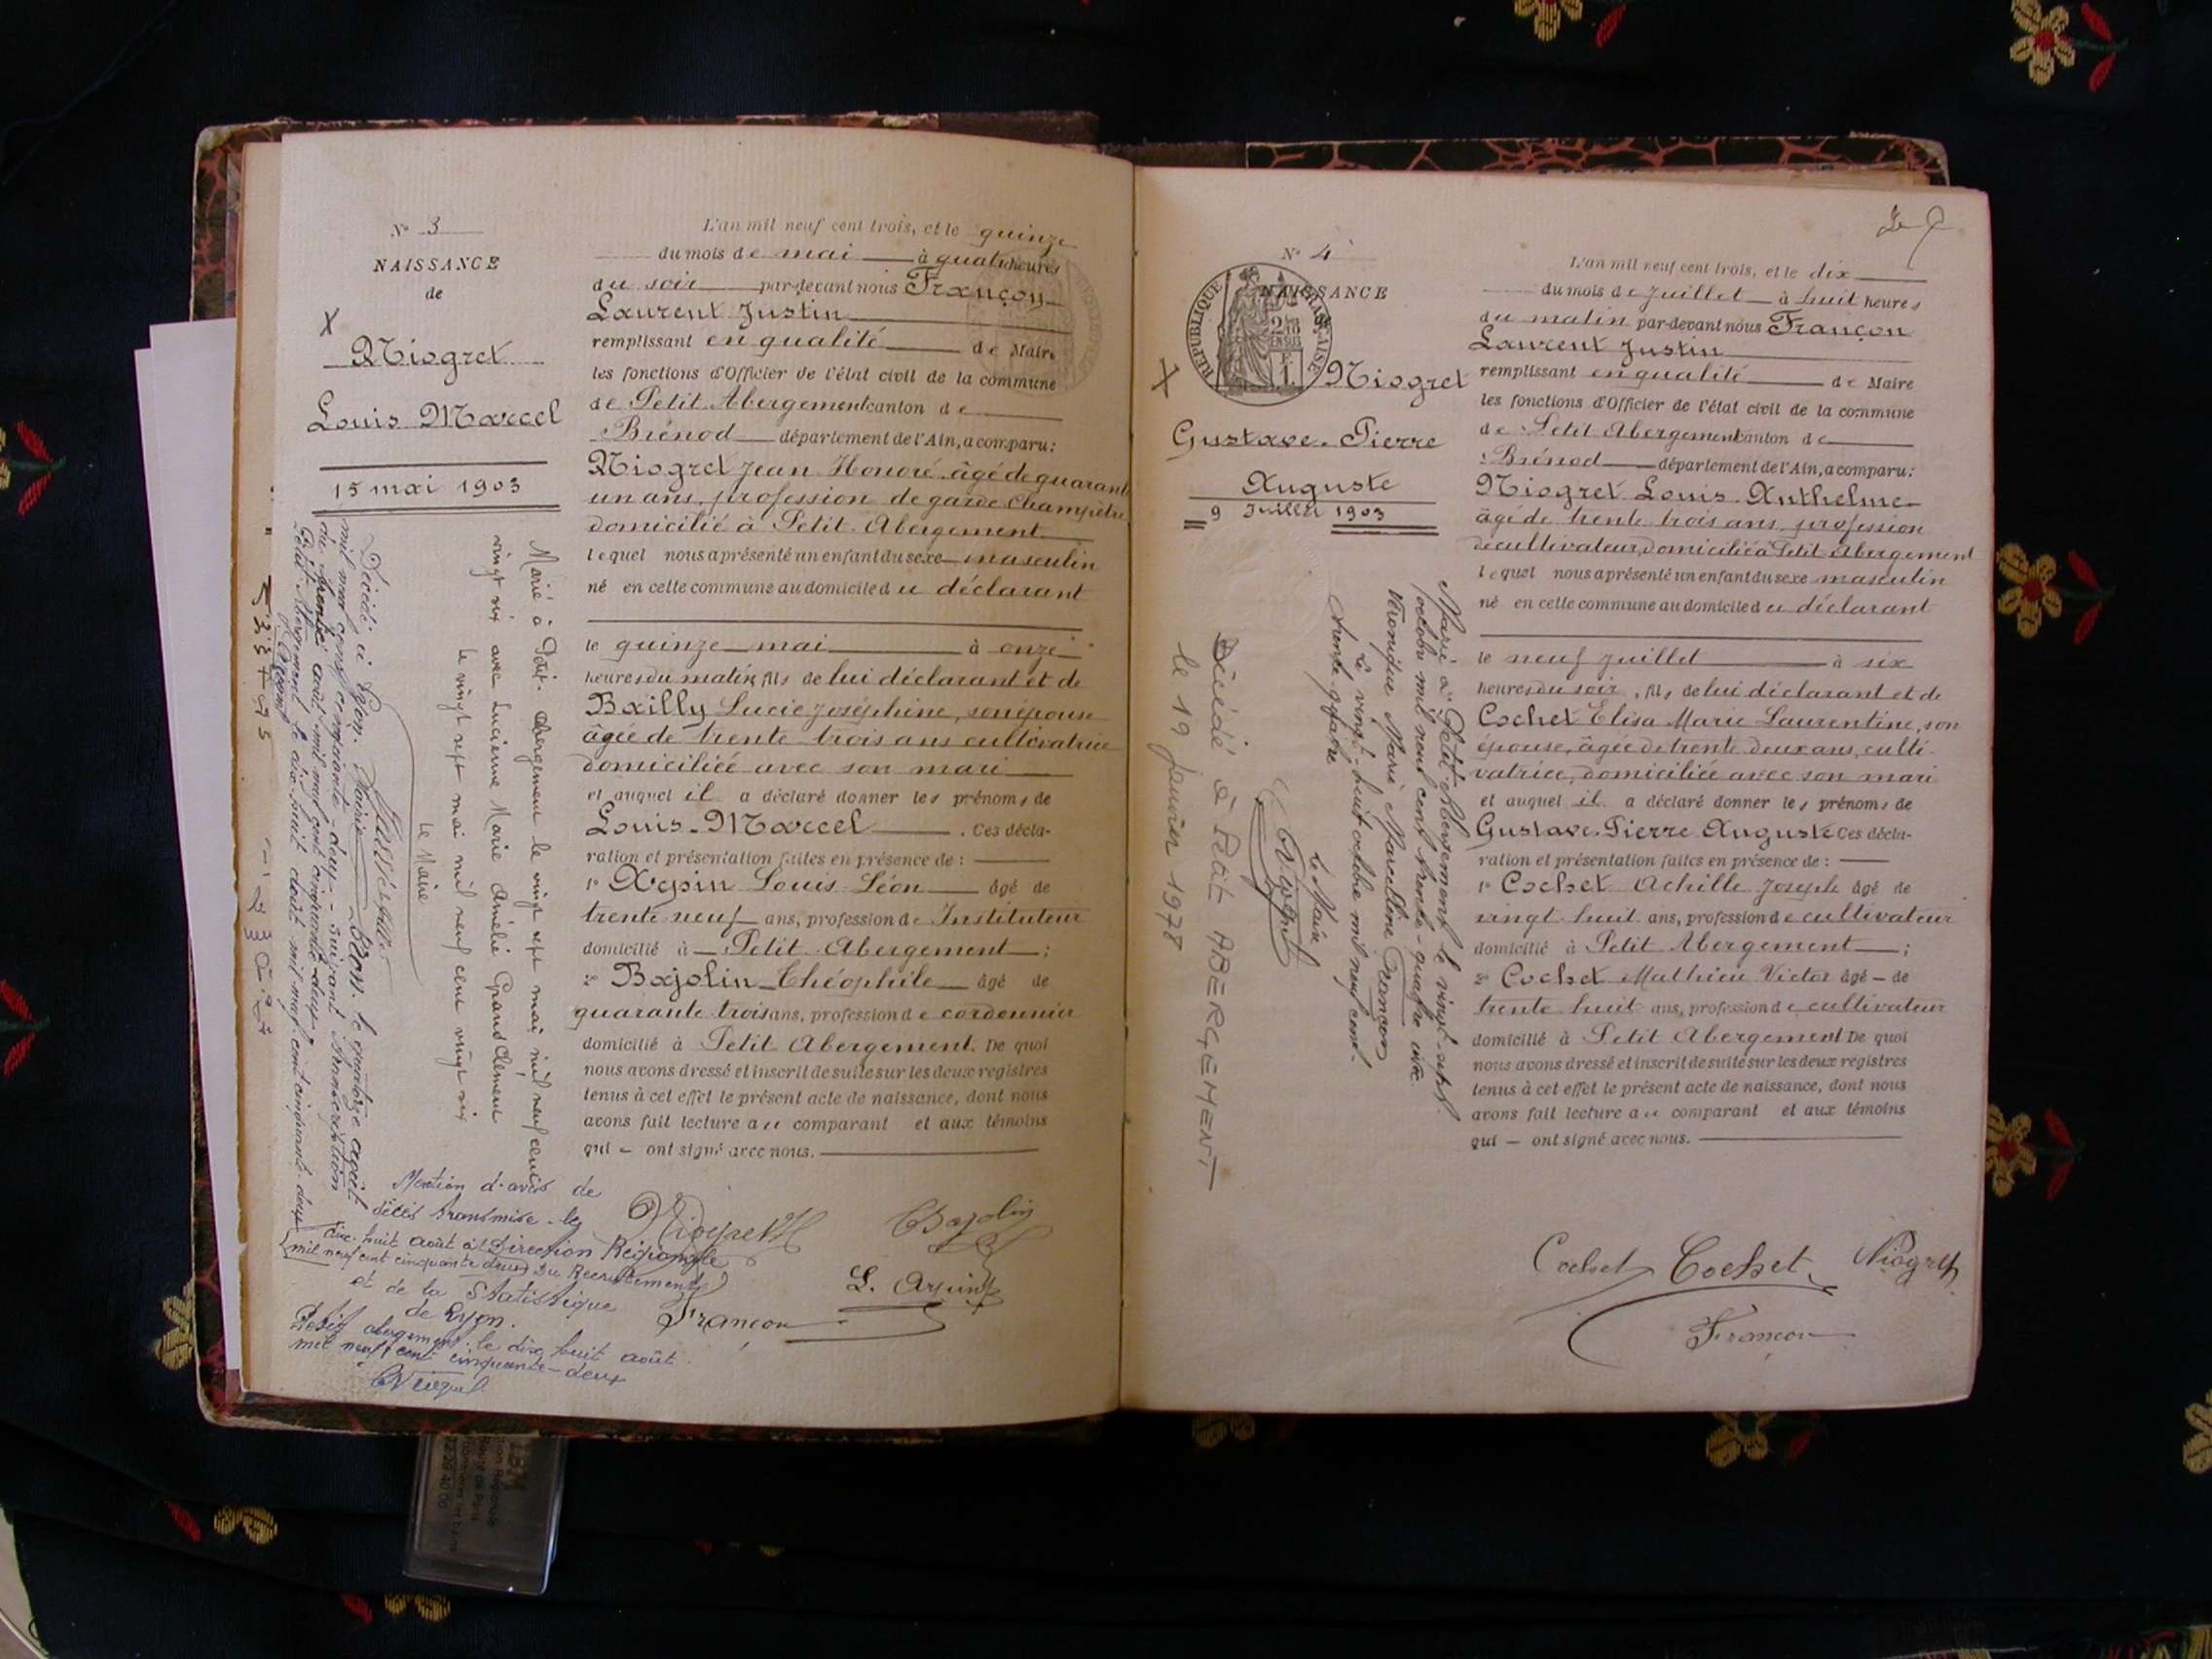 N° 3
NAISSANCE
de
X
Niogret
Louis Marcel
15 mai 1903
L'an mil neuf cent trois, et le quinze
du mois de mai à quatre heures
du soir par-devant nous Françon
Laurent Justin
remplissant en qualité de Maire
les fonctions d'Officier de l'état civil de la commune
de Petit Abergement canton de
Brénod département de l'Ain, a comparu:
Niogret Jean Honoré âgé de quarante
un ans, profession de garde champêtre
domicilié à Petit Abergement
lequel nous a présenté un enfant du sexe masculin
né en cette commune au domicile du déclarant
le quinze mai à onze
heures du matin, fils de lui déclarant et de
Bailly Lucie Joséphine, son épouse
âgée de trente trois ans cultivatrice
domiciliée avec son mari
et auquel il a déclaré donner les prénoms de
Louis-Marcel . Ces décla-
ration et présentation faites en présence de :
1° Arpin Louis Léon âgé de
trente neuf ans, profession de Instituteur
domicilié à Petit Abergement ;
2° Bajolin Théophile âgé de
quarante trois ans, profession de cordonnier
domicilié à Petit Abergement. De quoi
nous avons dressé et inscrit de suite sur les deux registres
tenus à cet effet le présent acte de naissance, dont nous
avons fait lecture au comparant et aux témoins
qui ont signé avec nous.
Marié à Petit-Abergement le vingt sept mai mil neuf cent
vingt six avec Lucienne Marie Amélie Grandclément
Le vingt sept mai mil neuf cent vingt six
Le Maire
Décédé à Lyon. Mairie Lyon. le quatorze août
mil neuf cent cinquante-deux - suivant transcription
du août mil neuf cent cinquante-deux
Petit-Abergement le dix huit août mil neuf cent cinquante-deux
Mention d'avis de
décès transmise le
dix-huit août à Direction Régionale
mil neuf cent cinquante deux du Recrutement
et de la Statistique
de Lyon.
Petit abergement. le dix huit août
mil neuf cent cinquante-deux
Niogret
Bajolin
L. Arpin
Françon
N° 4
RÉPUBLIQUE FRANÇAISE
NAISSANCE
X
Niogret
Gustave-Pierre
Auguste
9 Juillet 1903
L'an mil neuf cent trois, et le dix
du mois de juillet à huit heures
du matin par-devant nous Françon
Laurent Justin
remplissant en qualité de Maire
les fonctions d'Officier de l'état civil de la commune
de Petit Abergement canton de
Brénod département de l'Ain, a comparu:
Niogret Louis Anthelme
âgé de trente trois ans, profession
de cultivateur, domicilié à Petit Abergement
lequel nous a présenté un enfant du sexe masculin
né en cette commune au domicile du déclarant
le neuf juillet à six
heures du soir, fils de lui déclarant et de
Cochet Elisa Marie Laurentine, son
épouse, âgée de trente deux ans, culti-
vatrice, domiciliée avec son mari
et auquel il a déclaré donner les prénoms de
Gustave Pierre Auguste Ces décla-
ration et présentation faites en présence de :
1° Cochet Achille Joseph âgé de
vingt huit ans, profession de cultivateur
domicilié à Petit Abergement ;
2° Cochet Mathieu Victor âgé de
trente huit ans, profession de cultivateur
domicilié à Petit Abergement De quoi
nous avons dressé et inscrit de suite sur les deux registres
tenus à cet effet le présent acte de naissance, dont nous
avons fait lecture au comparant et aux témoins
qui ont signé avec nous.
Marié à Petit-Abergement le vingt-sept
octobre mil neuf cent trente-quatre avec
Véronique Marie Marcelline Françon
Le vingt-huit octobre mil neuf cent-
trente-quatre
Le Maire
Décédé à Petit ABERGEMENT
le 19 janvier 1978
Cochet Cochet Niogret
Françon